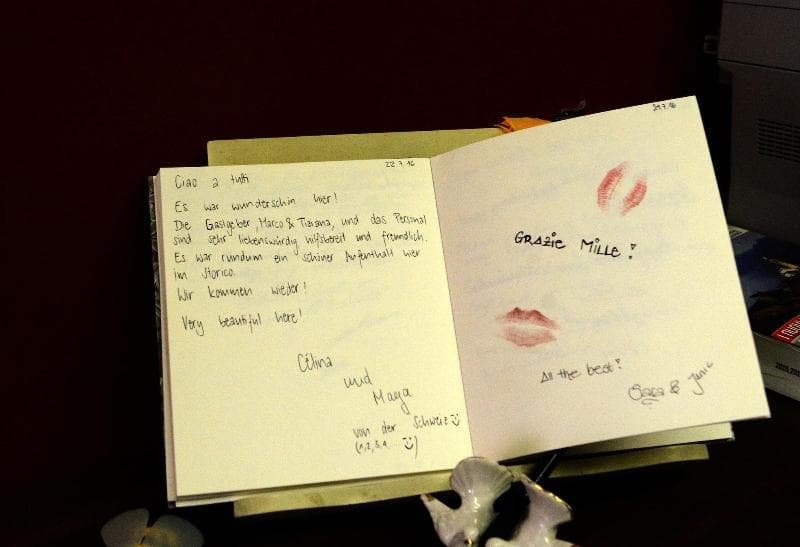 22.7.16
Ciao a tutti
Es war wunderschön hier!
Die Gastgeber, Marco & Tiziana, und das Personal
sind sehr liebenswürdig hilfsbereit und freundlich.
Es war rundum ein schöner Aufenthalt hier
im Storico.
Wir kommen wieder!
Very beautiful here!
Célina
und
Maya
von der Schweiz
(1,2,3,4...)
29.7.16
GRAZIE MILLE!
All the best!
Sara & Janic